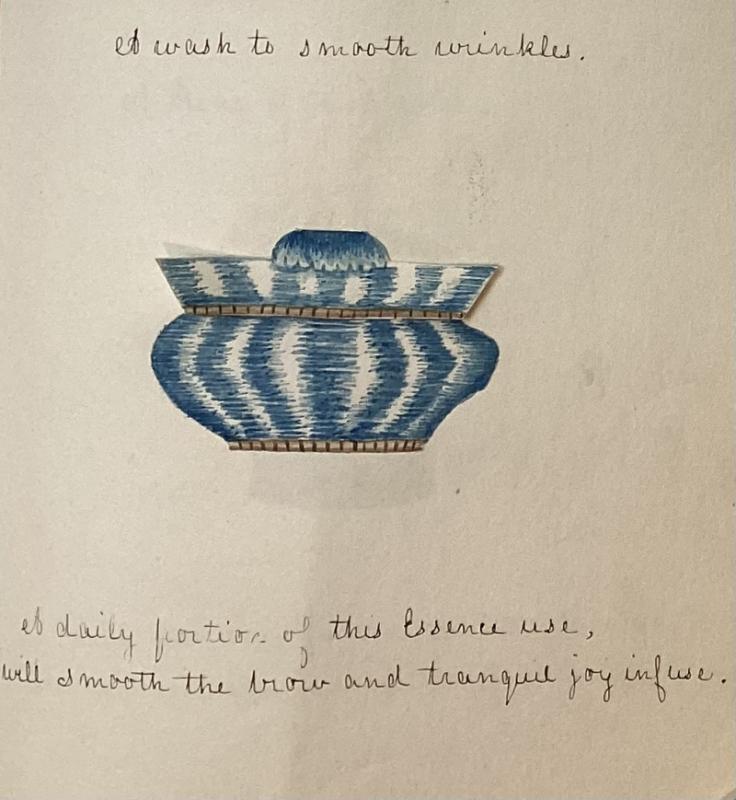 A wash to smooth wrinkles.
A daily portion of this Essence use,
will smooth the brow and tranquil joy infuse.